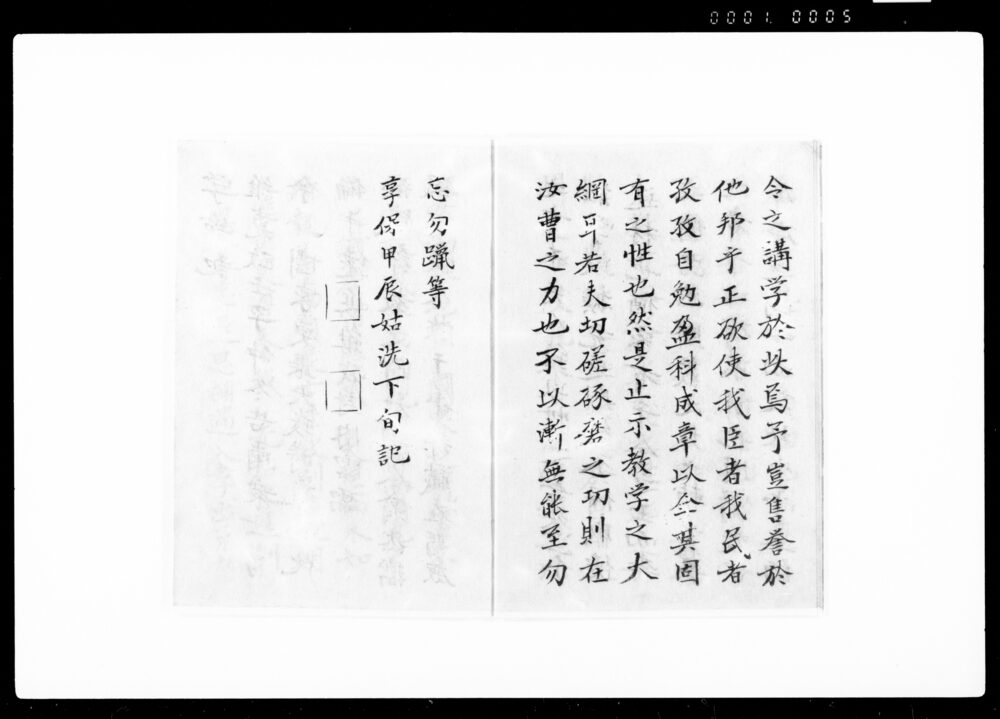 0001. 0005
令之講学於此焉予豈售誉於
他邦乎正欲使我臣者我民者
孜孜自勉盈科成章以全其固
有之性也然是止示教学之大
綱耳若夫切磋琢磨之功則在
汝曹之力也不以漸無能至勿
忘勿躐等
享保甲辰姑洗下旬記